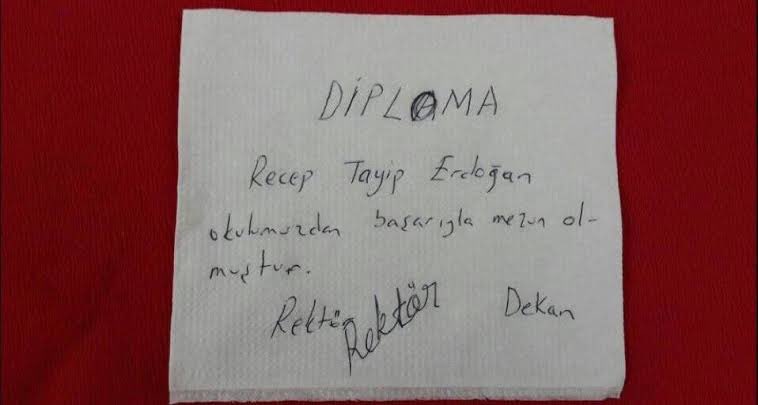 DİPLOMA
Recep Tayip Erdoğan
okulumuzdan başarıyla mezun ol-
muştur.
Rektör Rektör Dekan